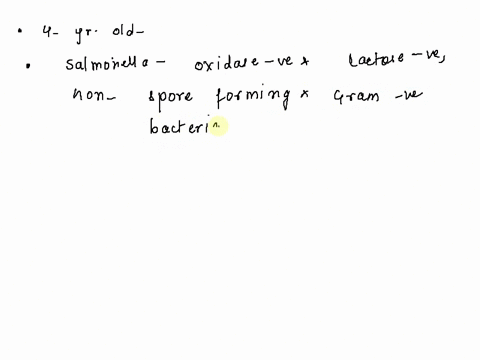 • 4- yr. old-
• Salmonella - oxidase -ve & Lactose -ve,
non- spore forming & Gram -ve
bacteri